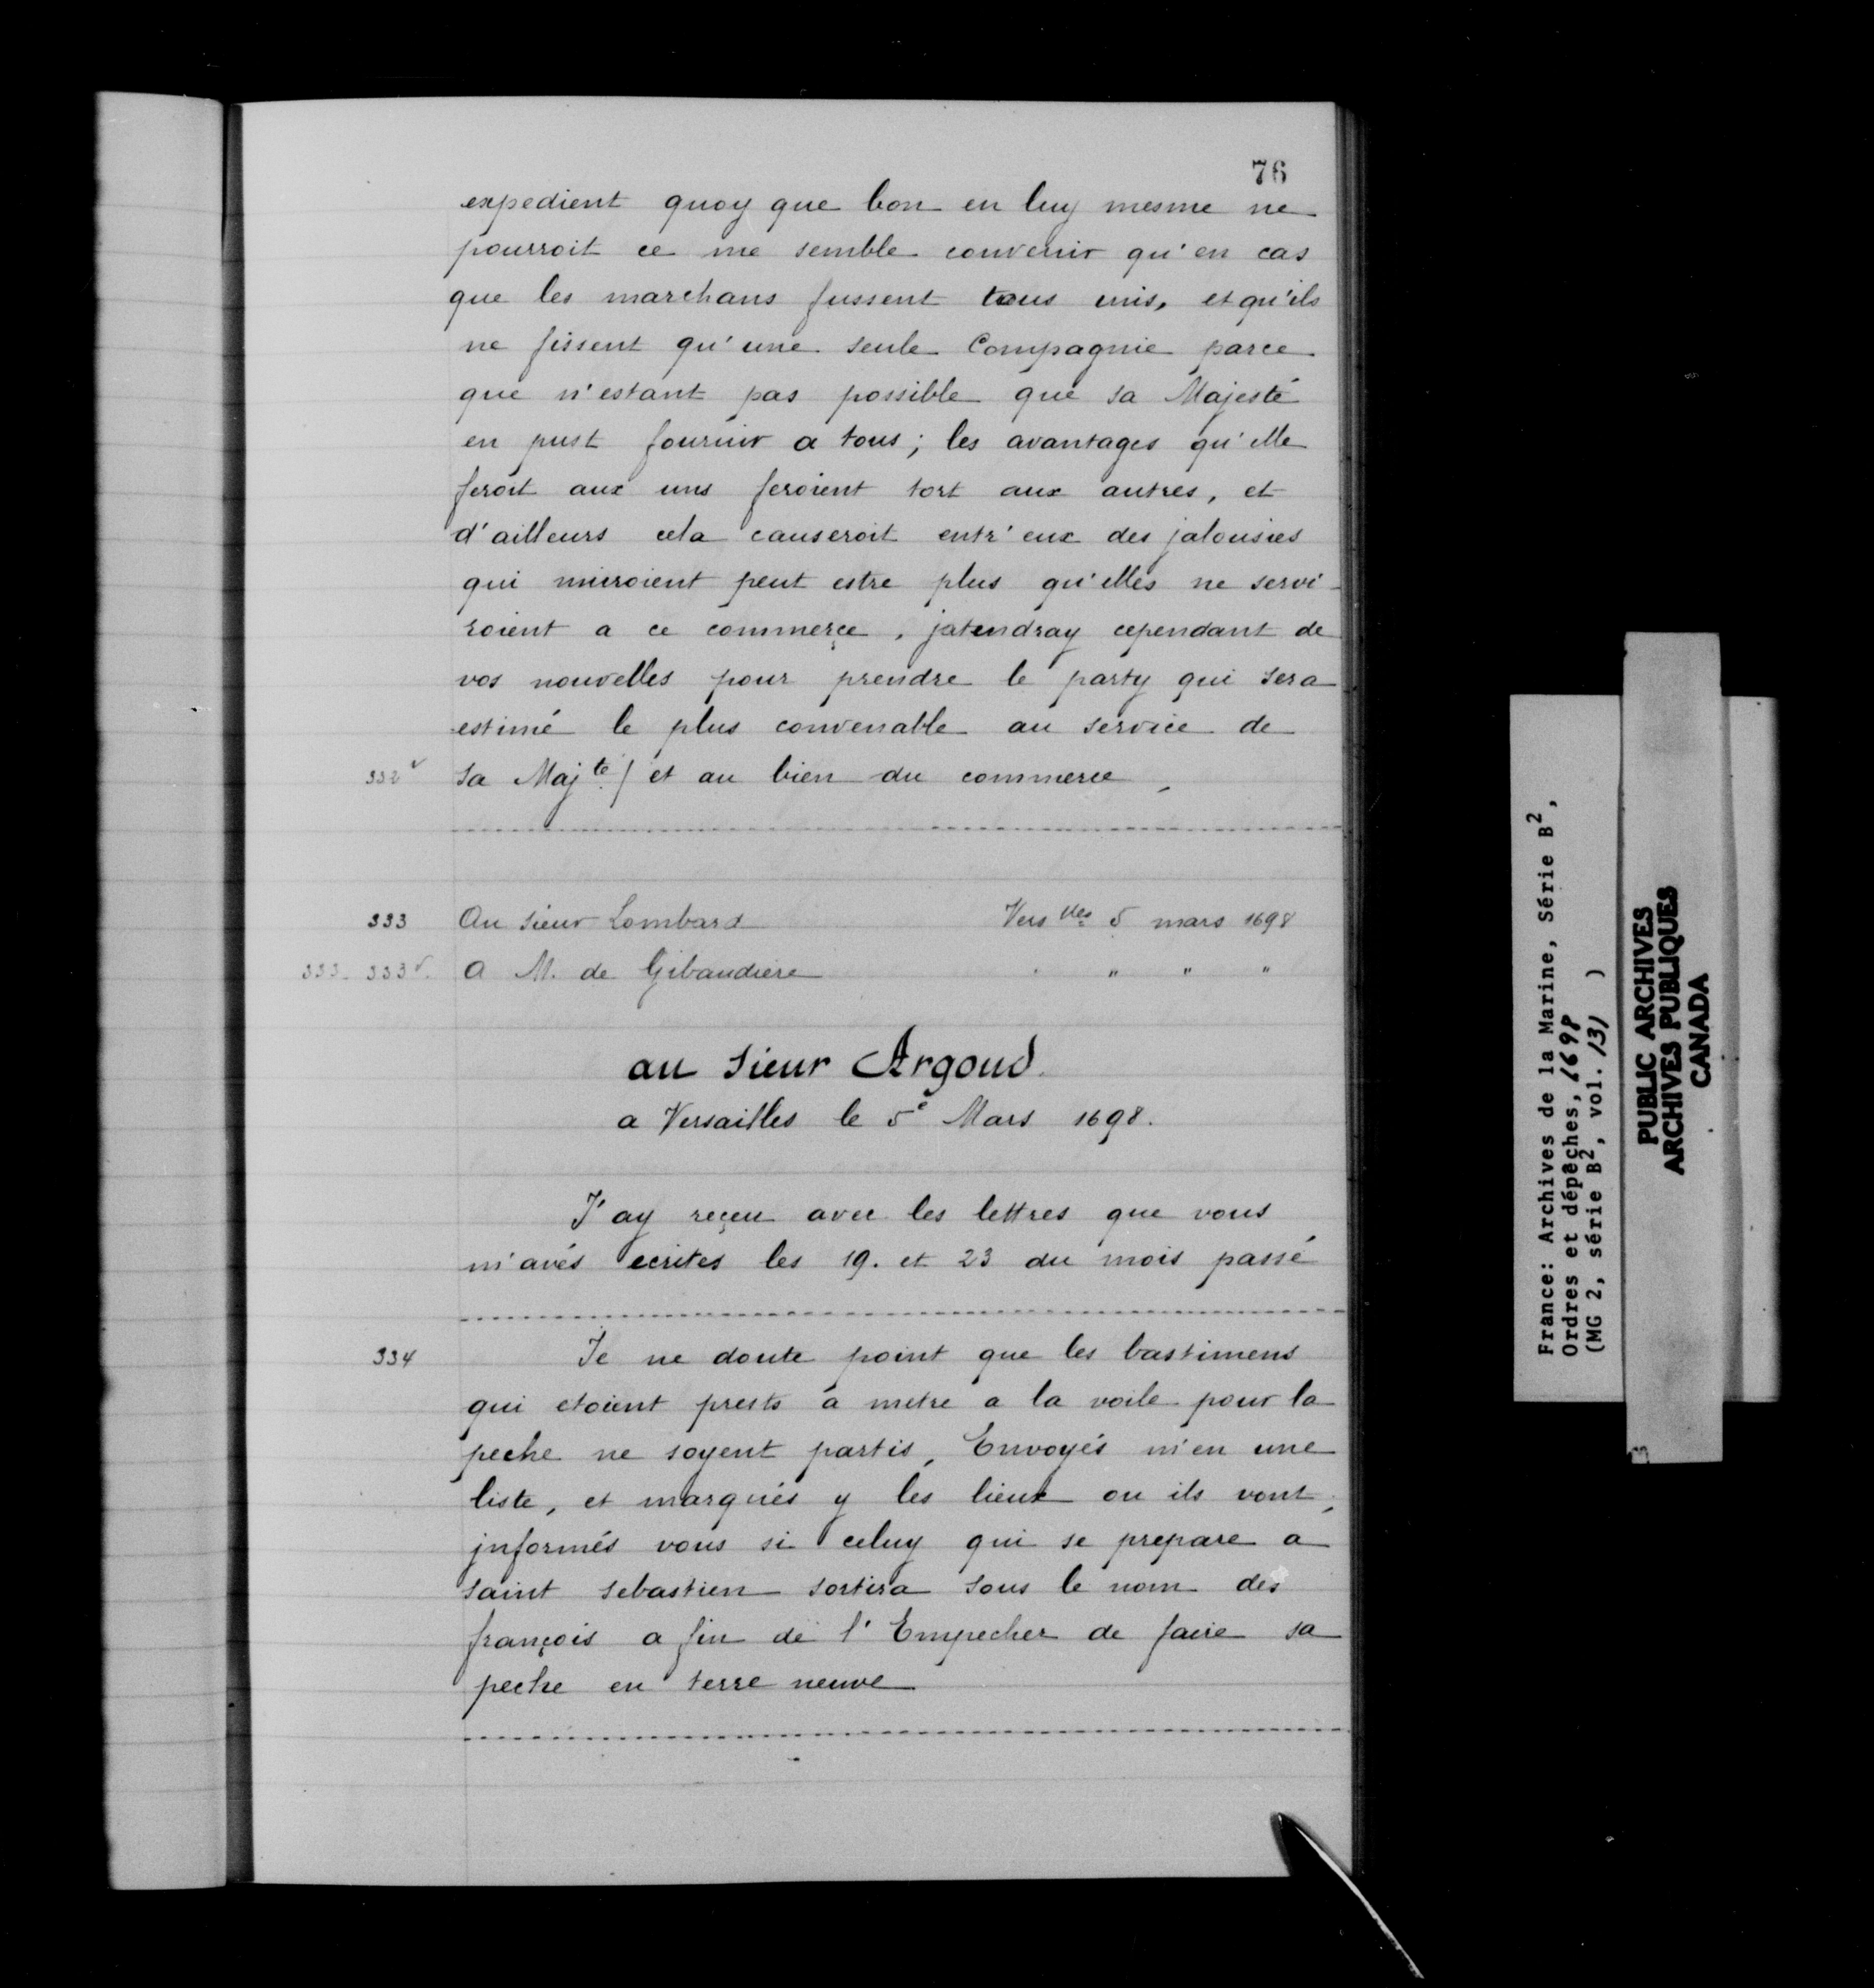 76
expedient quoy que bon en luy mesme ne
pourroit ce me semble convenir qu'en cas
que les marchans fussent tous unis, et qu'ils
ne fissent qu'une seule Compagnie parce
que n'estant pas possible que sa Majesté
en pust fournir a tous; les avantages qu'elle
feroit aux uns feroient tort aux autres, et
d'ailleurs cela causeroit entr'eux des jalousies
qui nuiroient peut estre plus qu'elles ne servi-
roient a ce commerce, jatendray cependant de
vos nouvelles pour prendre le party qui sera
estimé le plus convenable au service de
332v sa Maj.té / et au bien du commerce,
333 Au sieur Lombard Vers lles 5 mars 1698
333-333v. A M. de Gibaudiere " " "
au sieur Argoud.
a Versailles le 5e Mars 1698.
J'ay reçeu avec les lettres que vous
m'avés ecrites les 19. et 23 du mois passé
334 Je ne doute point que les bastimens
qui etoient prests a metre a la voile pour la
peche ne soyent partis, Envoyés m'en une
liste, et marqués y les lieux ou ils vont,
jnformés vous si celuy qui se prepare a
saint sebastien sortira sous le nom des
françois a fin de l'Empecher de faire sa
peche en terre neuve
France: Archives de la Marine, Série B2,
Ordres et dépêches, 1698
(MG 2, série B2, vol. 131 )
PUBLIC ARCHIVES
ARCHIVES PUBLIQUES
CANADA